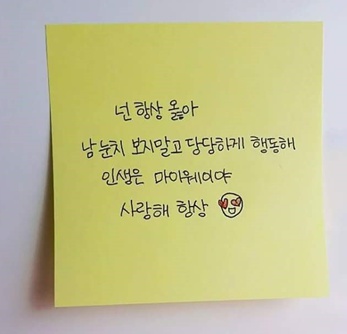 넌 항상 옳아
남 눈치 보지말고 당당하게 행동해
인생은 마이웨이야
사랑해 항상